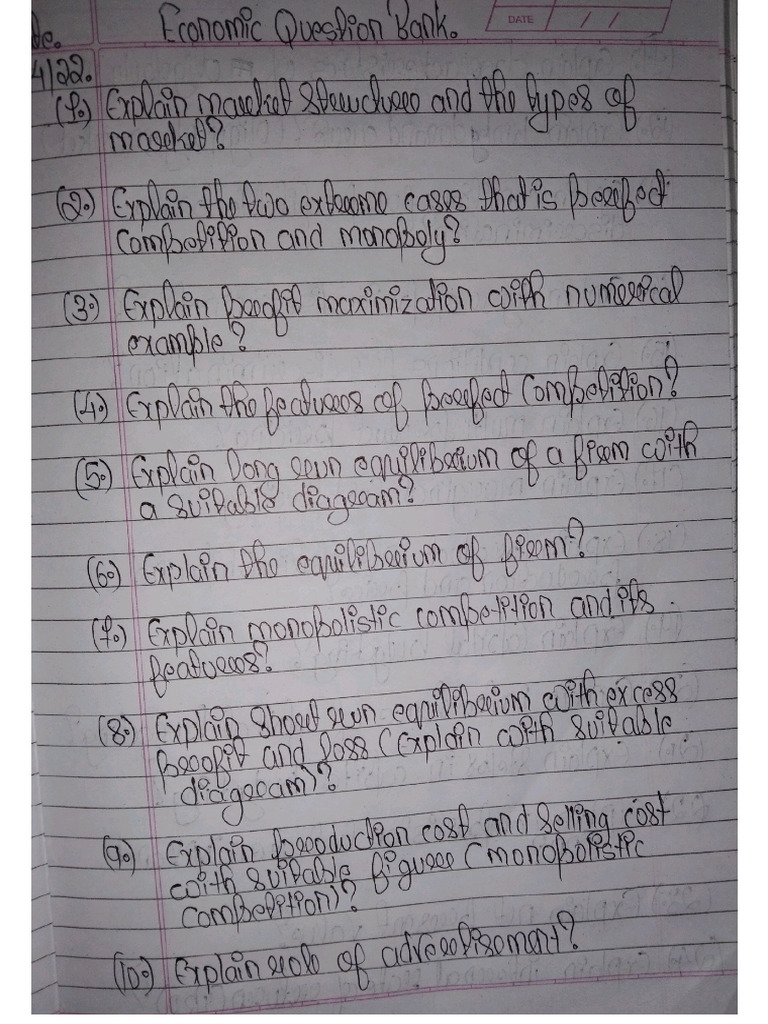 Economic Question Bank.
DATE / /
de.
4/22.
(1.) Explain market structures and the types of
market?
(2.) Explain the two extreme cases that is perfect
competition and monopoly?
(3.) Explain profit maximization with numerical
example?
(4.) Explain the features of perfect competition?
(5.) Explain long run equilibrium of a firm with
a suitable diagram?
(6.) Explain the equilibrium of firm?
(7.) Explain monopolistic competition and its
features?
(8.) Explain short run equilibrium with excess
profit and loss (Explain with suitable
diagram)?
(9.) Explain production cost and selling cost
with suitable figure (monopolistic
competition)?
(10.) Explain role of advertisement?